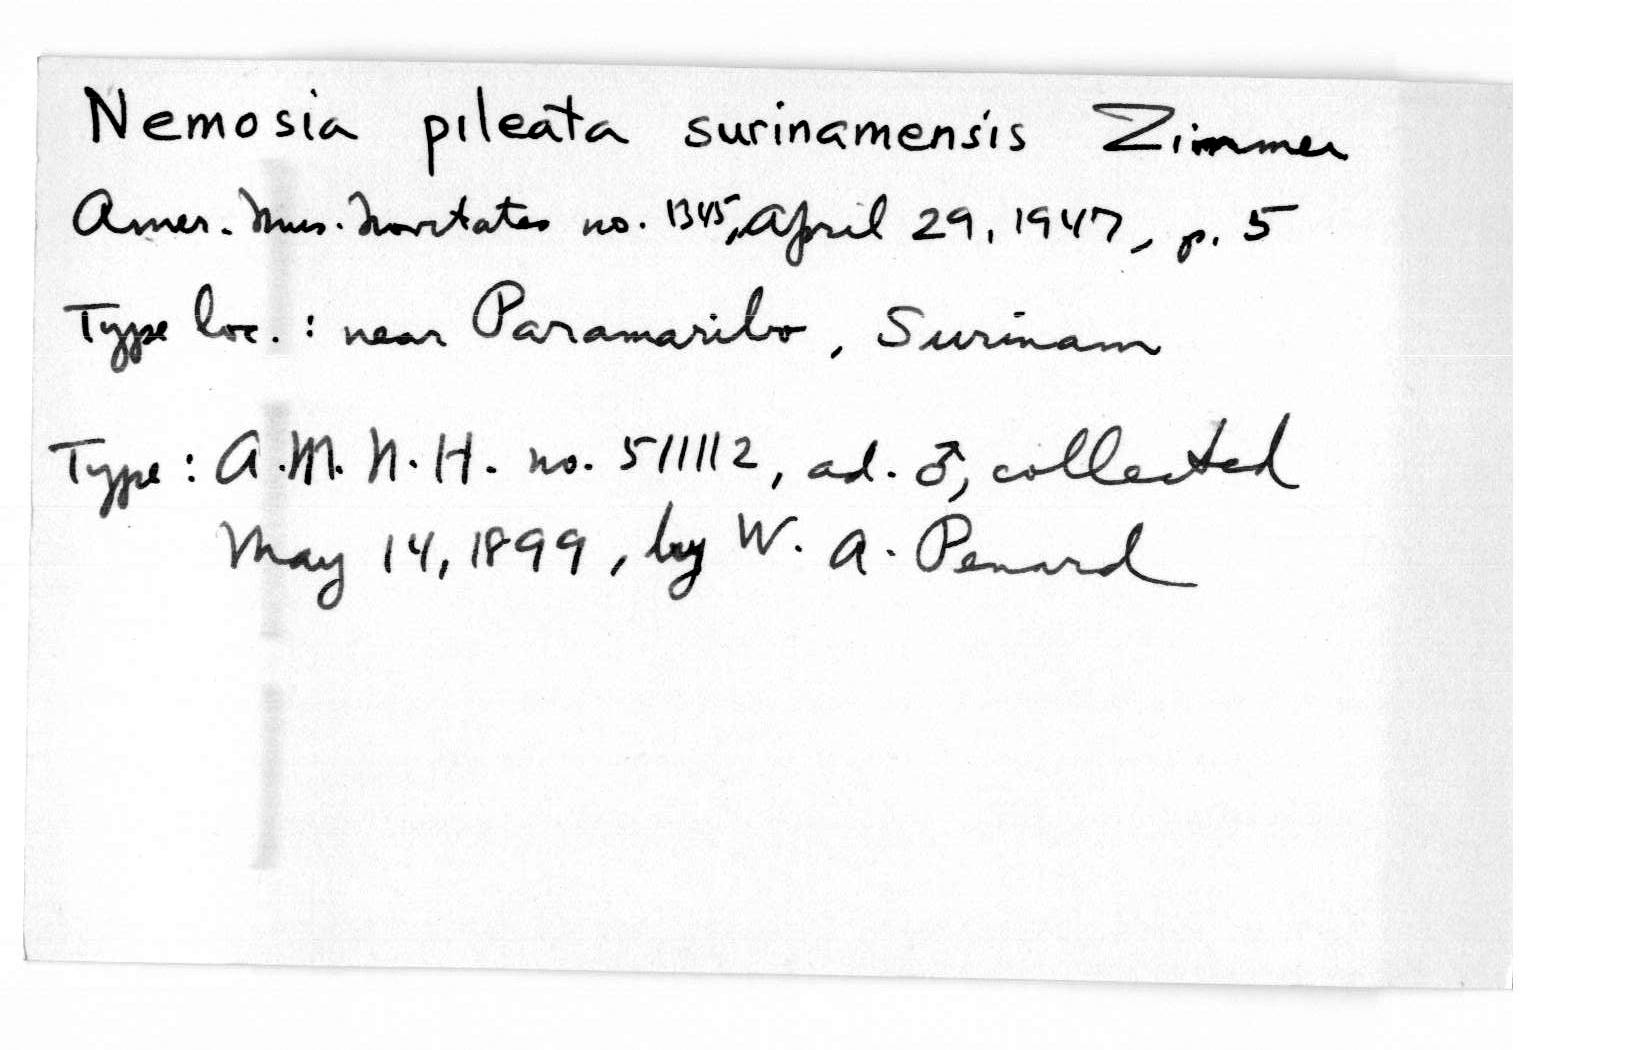 Nemosia pileata surinamensis Zimmer
Amer. Mus. Novitates no. 1345, April 29, 1947, p. 5
Type loc. : near Paramaribo, Surinam
Type : A.M.N.H. no. 511112, ad. ♂, collected
May 14, 1899, by W. A. Penard